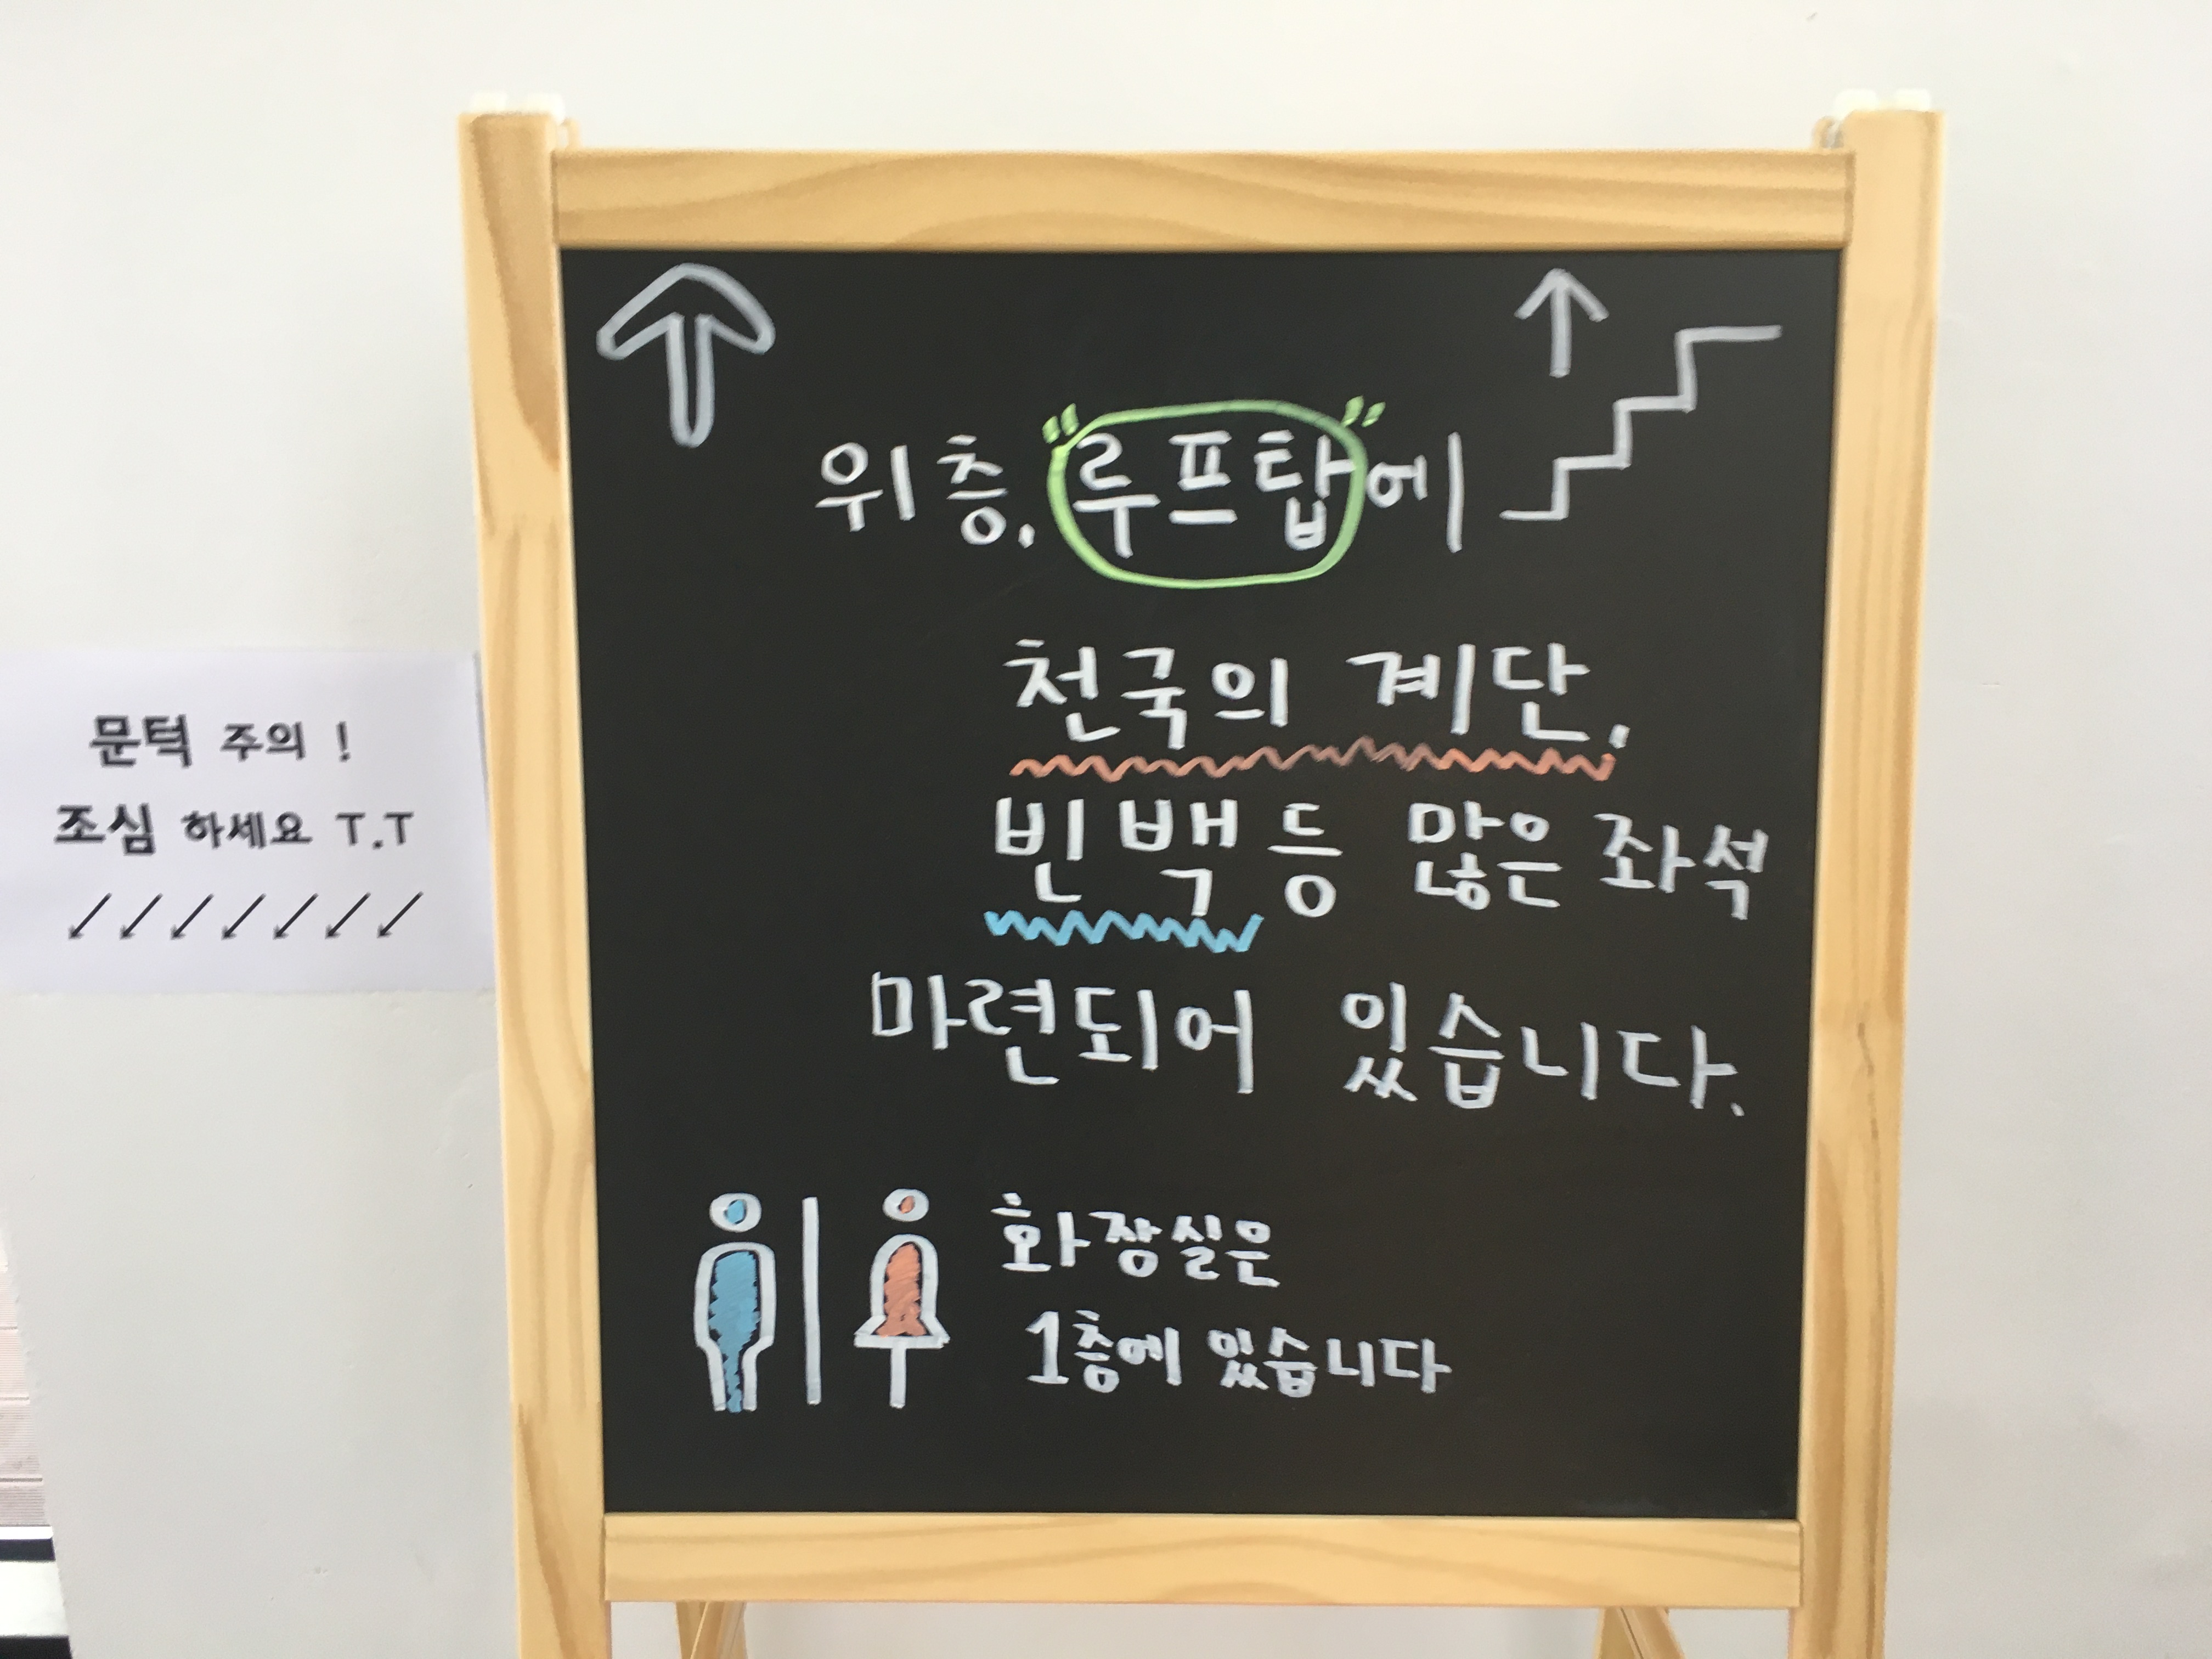 위층, "루프탑"에
천국의 계단,
빈백 등 많은 좌석
마련되어 있습니다.
화장실은
1층에 있습니다
문턱 주의 !
조심 하세요 T.T
↙↙↙↙↙↙↙